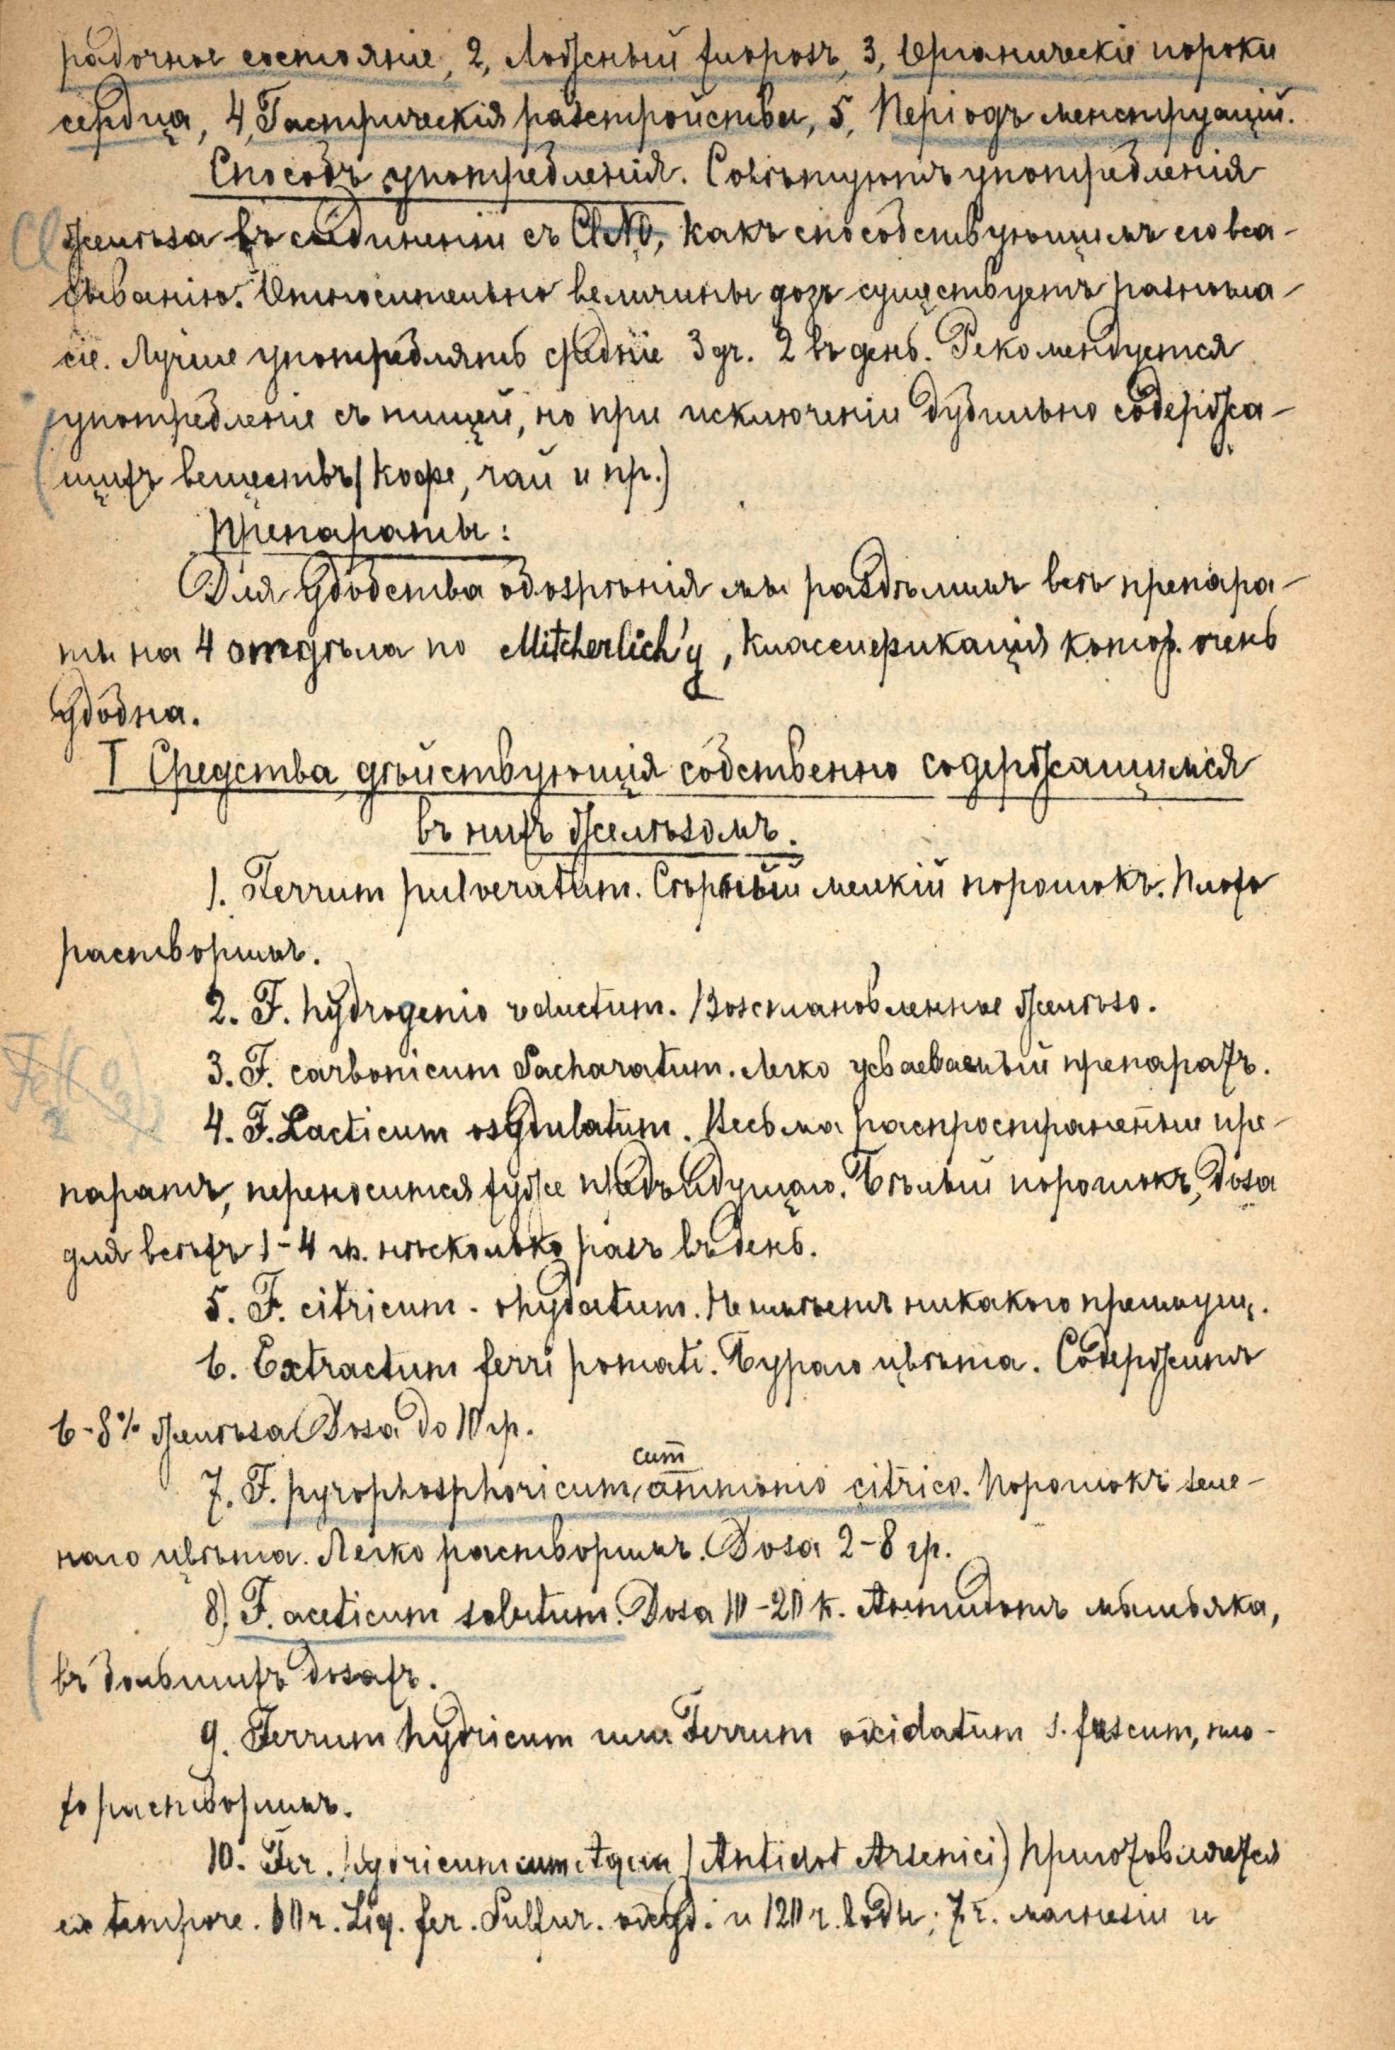 радочное состояніе, 2, Ложный хлорозъ, 3, Органическіе пороки
сердца, 4, Гастрическія разстройства, 5, Періодъ менструацій.
Способъ употребленія. Совѣтуютъ употребленія
желѣза въ соединеніи съ ClNa, какъ способствующимъ его вса-
сыванію. Относительно величины дозъ существуетъ разногла-
сіе. Лучше употреблять средніе 3 gr. 2 въ день. Рекомендуется
употребленіе съ пищей, но при исключеніи дубильно содержа-
щихъ веществъ (кофе, чай и пр.)
Препараты:
Для удобства обозрѣнія мы раздѣлимъ всѣ препара-
ты на 4 отдѣла по Mitcherlich'у, классификація котор. очень
удобна.
I Средства дѣйствующія собственно содержащимся
въ нихъ желѣзомъ.
1. Ferrum pulveratum. Сѣрный мелкій порошокъ. Плохо
растворимъ.
2. F. hydrogenio reductum. Возстановленное желѣзо.
3. F. carbonicum Sacharatum. Легко усваеваемый препаратъ.
4. F. Lacticum oxydulatum. Весьма распространенный пре-
паратъ, переносится хуже предъидущаго. Бѣлый порошокъ, Dosa
для всѣхъ 1-4 гр. нѣсколько разъ въ день.
5. F. citricum - ohydatum. Не имѣетъ никакого преимущ.
6. Extractum ferri pomati. Бураго цвѣта. Содержитъ
6-8% желѣза Dosa до 10 гр.
7. F. pyrophosphoricum cum ammonio citrico. Порошокъ зеле-
наго цвѣта. Легко растворимъ. Dosa 2-8 гр.
8) F. aceticum solutum. Dosa 10-20 к. Антидотъ мышьяка,
въ большихъ дозахъ.
9. Ferrum hydricum или Ferrum oxidatum s. fuscum, пло-
хо растворимъ.
10. Fer. hydricum cum Aqua (Antidot Arsenici) Приготовляется
ex tempore. 60 г. Liq. fer. Sulfur. oxyd. и 120 г. воды; 7 г. магнезіи и